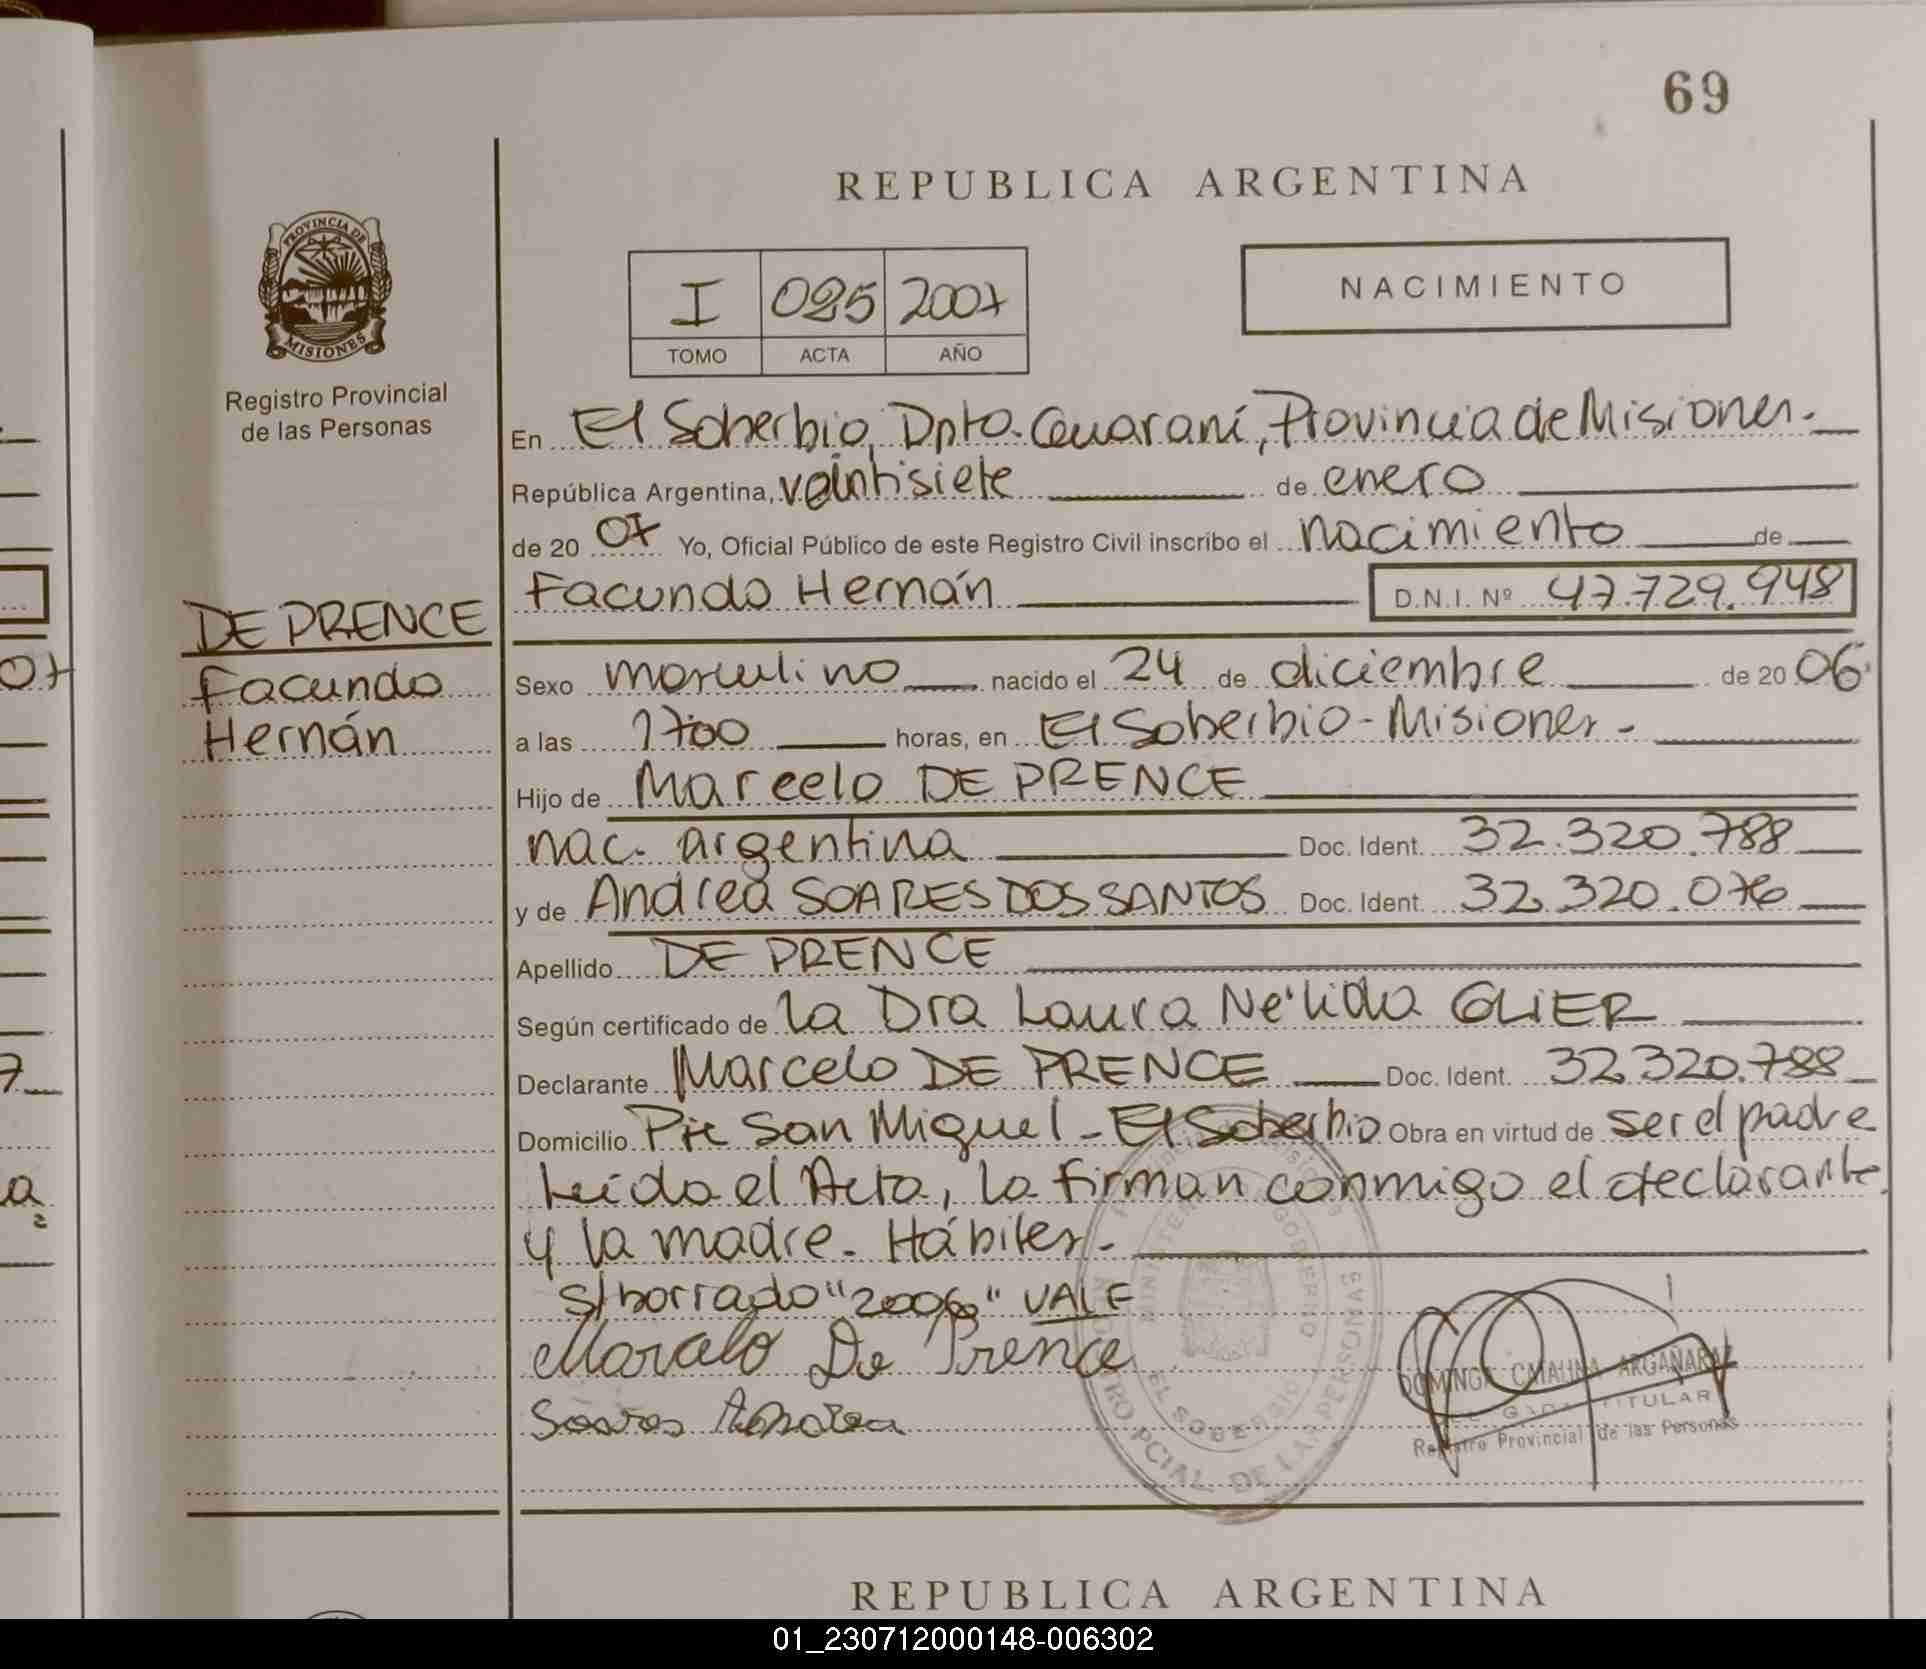 69
REPUBLICA ARGENTINA
PROVINCIA DE
MISIONES
Registro Provincial
de las Personas
I 025 2007
TOMO ACTA AÑO
NACIMIENTO
En El Soberbio, Dpto. Guaraní, Provincia de Misiones.
República Argentina, veintisiete de enero
de 20 07 Yo, Oficial Público de este Registro Civil inscribo el nacimiento de
Facundo Hernán D.N.I. Nº 47.729.948
DE PRENCE
Facundo
Hernán
Sexo masculino nacido el 24 de diciembre de 20 06
a las 1700 horas, en El Soberbio - Misiones -
Hijo de Marcelo DE PRENCE
nac. argentina Doc. Ident. 32.320.788
y de Andrea SOARES DOS SANTOS Doc. Ident. 32.320.076
Apellido DE PRENCE
Según certificado de la Dra Laura Nélida GLIER
Declarante Marcelo DE PRENCE Doc. Ident. 32.320.788
Domicilio Pje San Miguel - El Soberbio Obra en virtud de ser el padre
Leída el Acta, la firman conmigo el declarante
y la madre. Hábiles.
S/borrado "2006" VALE
Marcelo De Prence
Soares Andrea
EL SOBERBIO
REGISTRO PCIAL. DE LAS PERSONAS
DOMINGA CATALINA ARGAÑARAZ
DELEGADA TITULAR
Registro Provincial de las Personas
REPUBLICA ARGENTINA
01_230712000148-006302